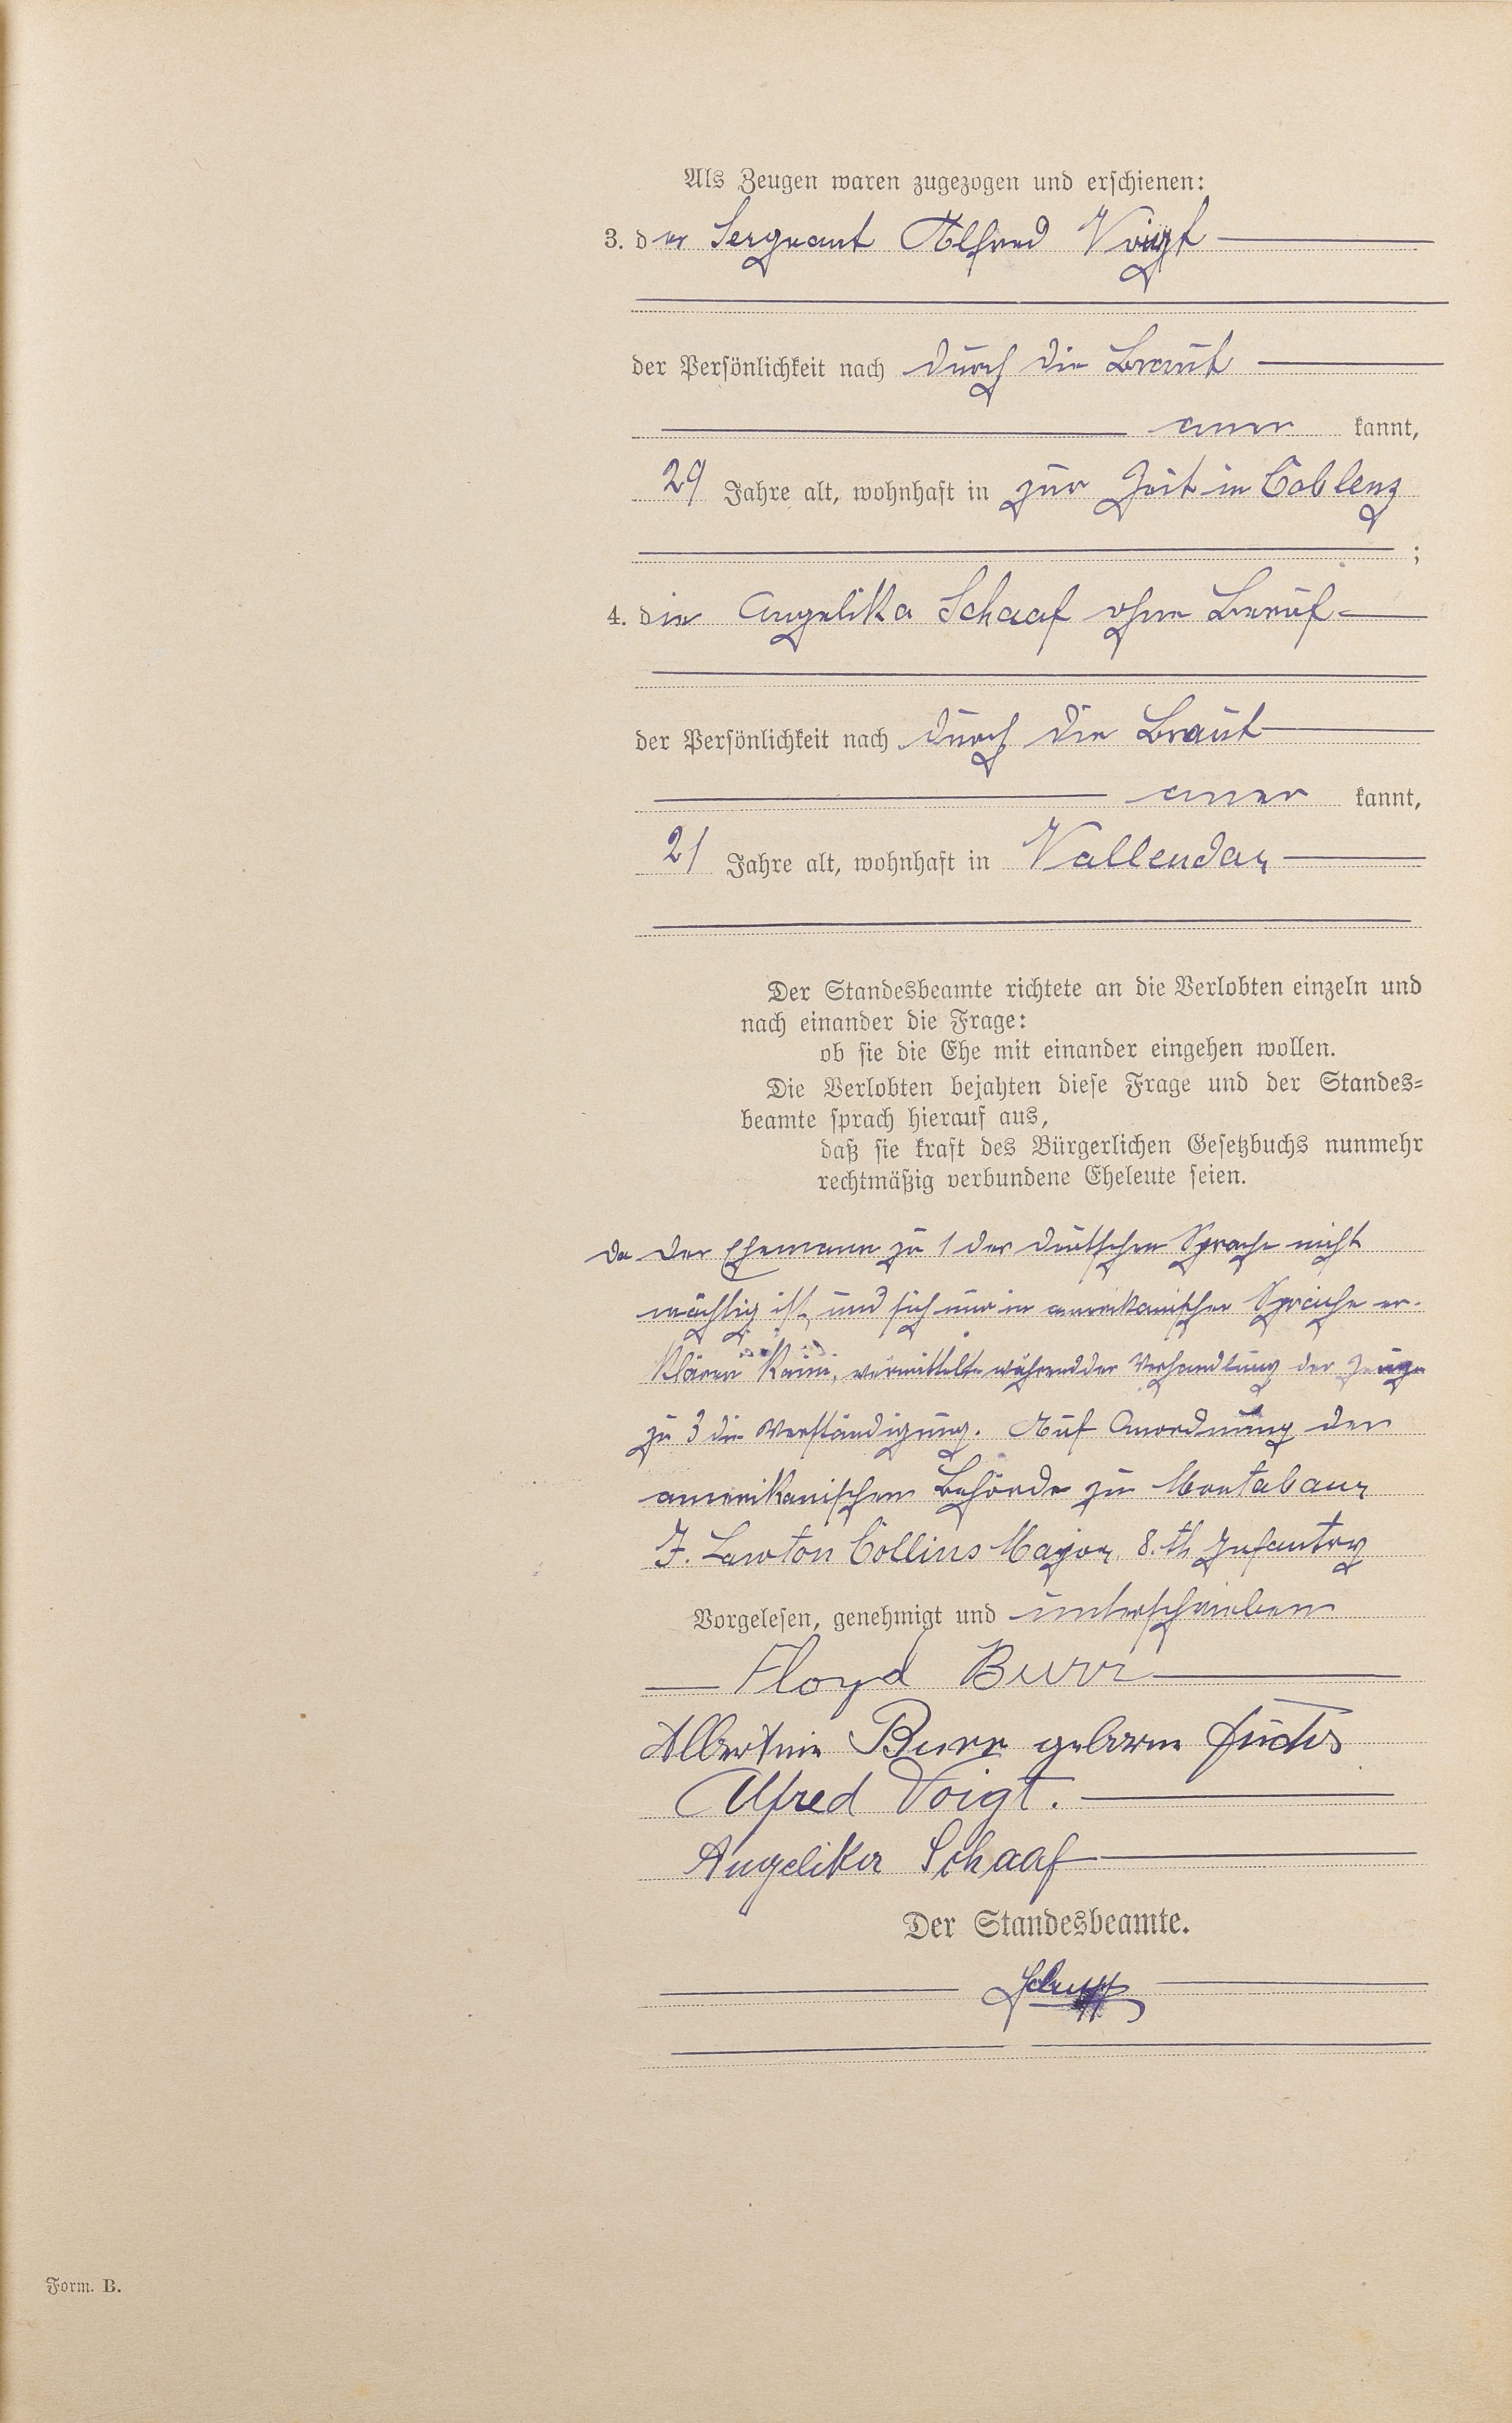 Als Zeugen waren zugezogen und erschienen:
3. der Sergeant Alfred Voigt
der Persönlichkeit nach durch die Braut
aner kannt,
29 Jahre alt, wohnhaft in zur Zeit in Coblenz
;
4. die Angelika Schaaf ohne Beruf
der Persönlichkeit nach durch die Braut
aner kannt,
21 Jahre alt, wohnhaft in Vallendar
Der Standesbeamte richtete an die Verlobten einzeln und
nach einander die Frage:
ob sie die Ehe mit einander eingehen wollen.
Die Verlobten bejahten diese Frage und der Standes=
beamte sprach hierauf aus,
daß sie kraft des Bürgerlichen Gesetzbuchs nunmehr
rechtmäßig verbundene Eheleute seien.
Da der Ehemann zu 1 der deutschen Sprache nicht
mächtig ist, und sich nur in amerikanischer Sprache er-
klären kann, vermittelte während der Verhandlung der Zeuge
zu 3 die Verständigung. Auf Anordnung der
amerikanischen Behörde zu Montabaur
J. Lawton Collins Major, 8.th Infantry
Vorgelesen, genehmigt und unterschrieben
Floyd Burr
Albertine Burr geborne Fuchs
Alfred Voigt.
Angelika Schaaf
Der Standesbeamte.
Form. B.